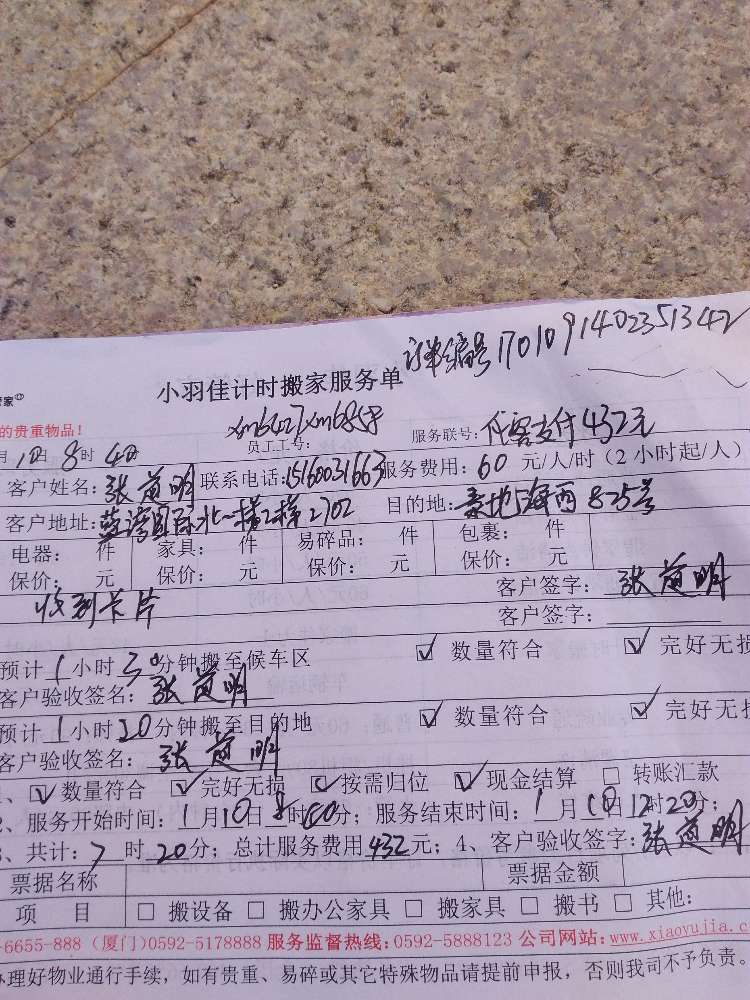 订单编号 1701091402351342
小羽佳计时搬家服务单
管家
的贵重物品！ xm6427xm6858
员工工号： 服务联号：代客支付432元
月10日8时40
客户姓名：张道明 联系电话：15160031663 服务费用：60 元/人/时（2小时起/人）
客户地址：蓝湾国际北一梯2梯2702 目的地：海西825号
电器： 件 家具： 件 易碎品： 件 包裹： 件
保价： 元 保价： 元 保价： 元 保价： 元
收到卡片 客户签字：张道明
客户签字：
预计1小时30分钟搬至候车区 ☑ 数量符合 ☑ 完好无损
客户验收签名：张道明
预计1小时20分钟搬至目的地 ☑ 数量符合 ☑ 完好无损
客户验收签名：张道明
、☑ 数量符合 ☑ 完好无损 ☑ 按需归位 ☑ 现金结算 □ 转账汇款
2、服务开始时间：1月10日8时60分；服务结束时间：1月10日12时20分；
3、共计：7时20分；总计服务费用432元；4、客户验收签字：张道明
票据名称 票据金额
项 目 □ 搬设备 □ 搬办公家具 □ 搬家具 □ 搬书 □ 其他:
-6655-888（厦门）0592-5178888 服务监督热线：0592-5888123 公司网站：www.xiaoyujia.c
办理好物业通行手续，如有贵重、易碎或其它特殊物品请提前申报，否则我司不予负责。